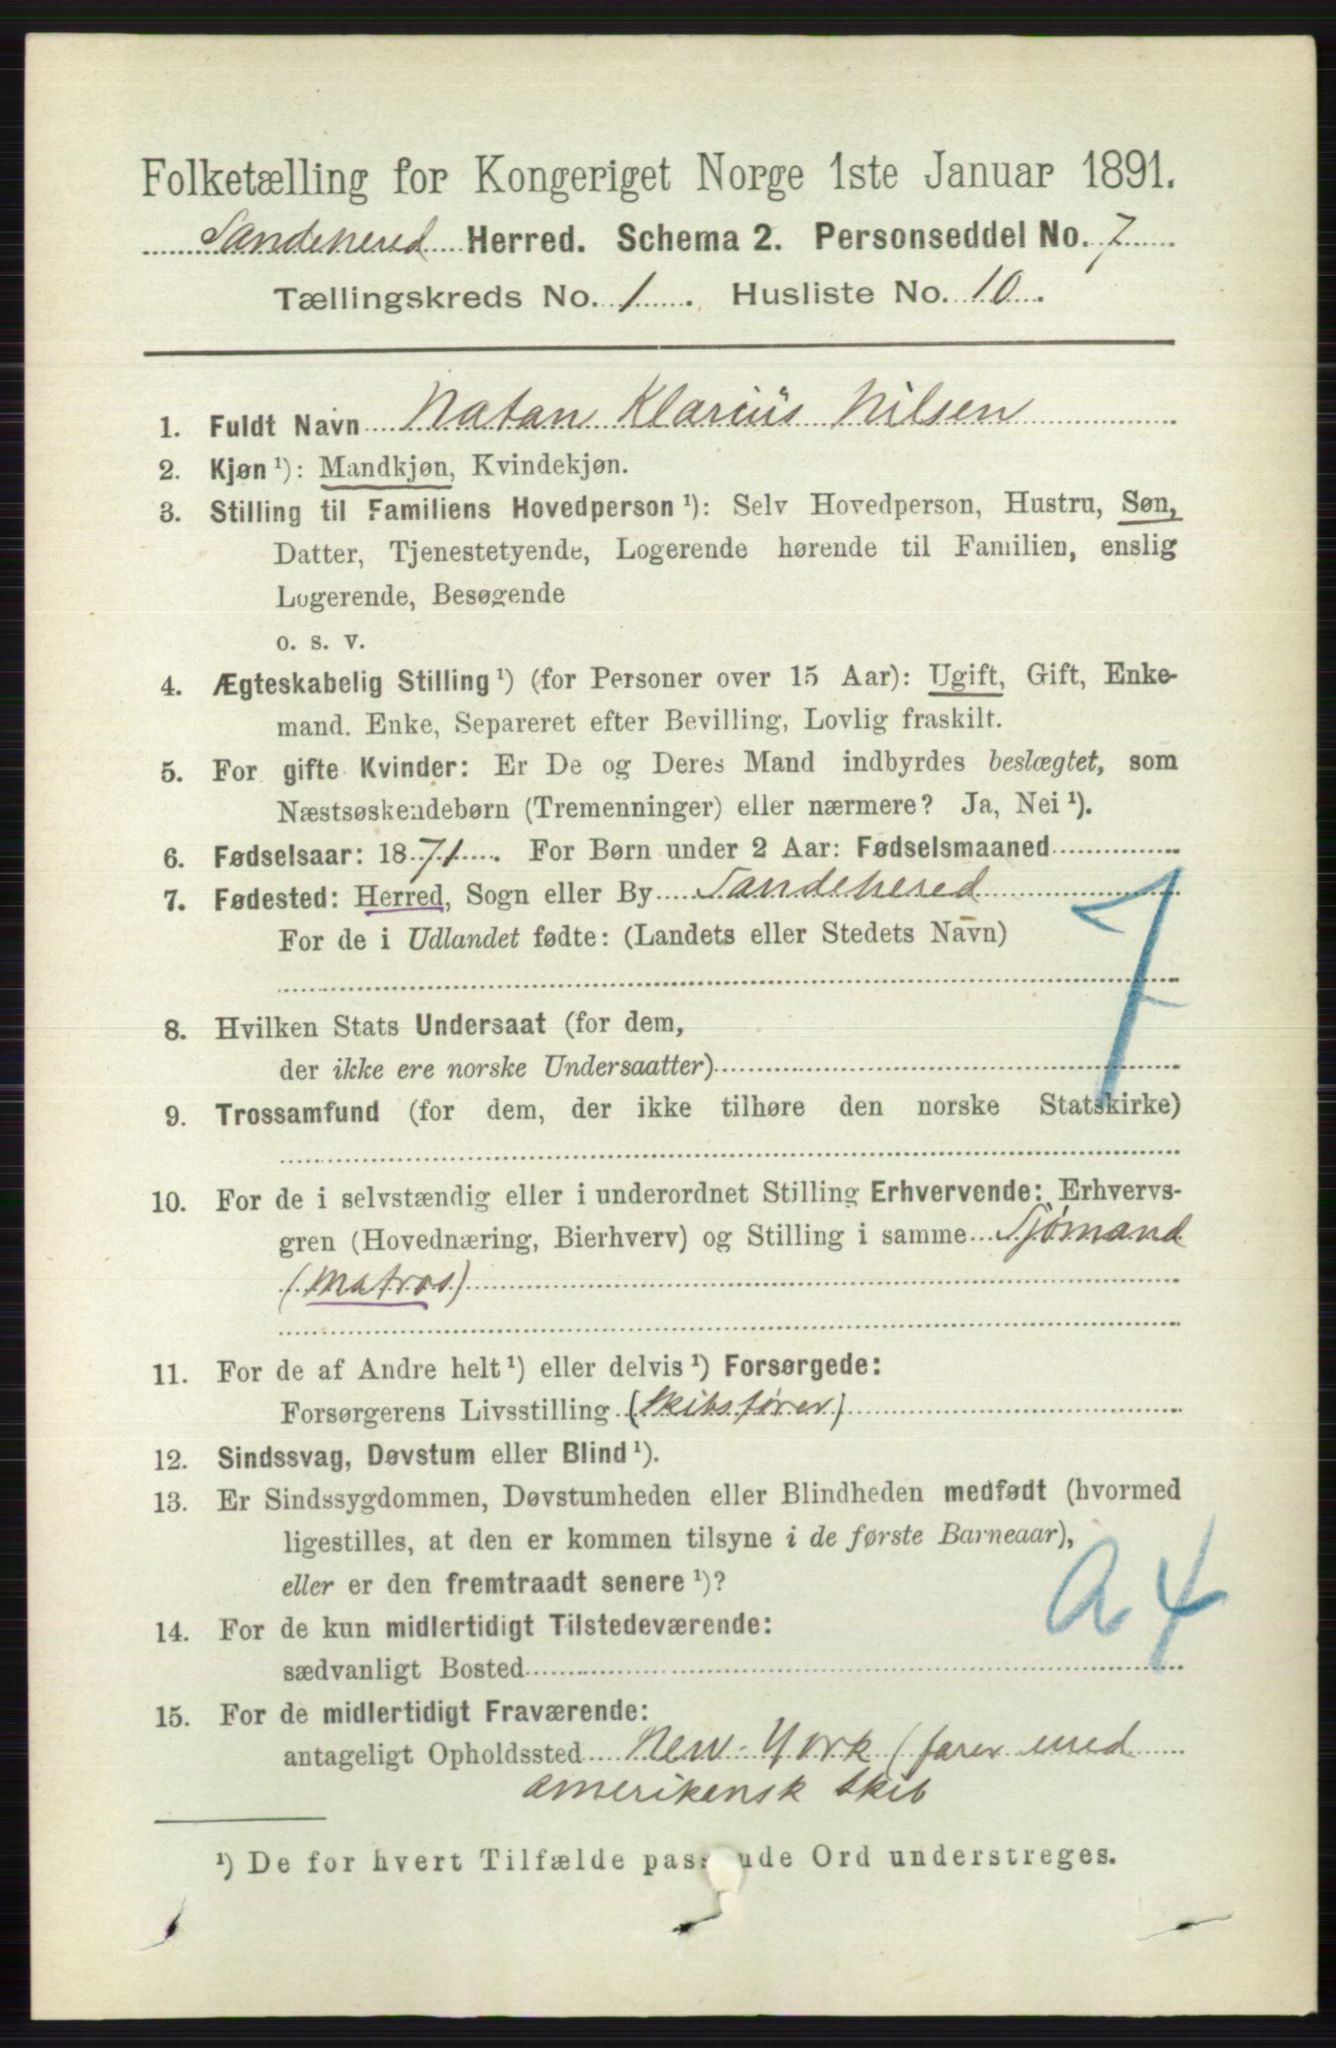 Folketælling for Kongeriget Norge 1ste Januar 1891.
Sandehered Herred. Schema 2. Personseddel No. 7
Tællingskreds No. 1. Husliste No. 10.
1. Fuldt Navn Natan Klarius Nilsen
2. Kjøn ¹): Mandkjøn, Kvindekjøn.
3. Stilling til Familiens Hovedperson ¹): Selv Hovedperson, Hustru, Søn,
Datter, Tjenestetyende, Logerende hørende til Familien, enslig
Logerende, Besøgende
o. s. v.
4. Ægteskabelig Stilling ¹) (for Personer over 15 Aar): Ugift, Gift, Enke-
mand. Enke, Separeret efter Bevilling, Lovlig fraskilt.
5. For gifte Kvinder: Er De og Deres Mand indbyrdes beslægtet, som
Næstsøskendebørn (Tremenninger) eller nærmere? Ja, Nei ¹).
6. Fødselsaar: 1871. For Børn under 2 Aar: Fødselsmaaned
7. Fødested: Herred, Sogn eller By Sandehered
For de i Udlandet fødte: (Landets eller Stedets Navn)
7
8. Hvilken Stats Undersaat (for dem,
der ikke ere norske Undersaatter)
9. Trossamfund (for dem, der ikke tilhøre den norske Statskirke)
10. For de i selvstændig eller i underordnet Stilling Erhvervende: Erhvervs-
gren (Hovednæring, Bierhverv) og Stilling i samme Sjömand
(Matros)
11. For de af Andre helt ¹) eller delvis ¹) Forsørgede:
Forsørgerens Livsstilling (Skibsfører)
12. Sindssvag, Døvstum eller Blind ¹).
13. Er Sindssygdommen, Døvstumheden eller Blindheden medfødt (hvormed
ligestilles, at den er kommen tilsyne i de første Barneaar),
eller er den fremtraadt senere ¹)?
a 4
14. For de kun midlertidigt Tilstedeværende:
sædvanligt Bosted
15. For de midlertidigt Fraværende:
antageligt Opholdssted New-York (farer med
amerikansk Skib
¹) De for hvert Tilfælde passende Ord understreges.